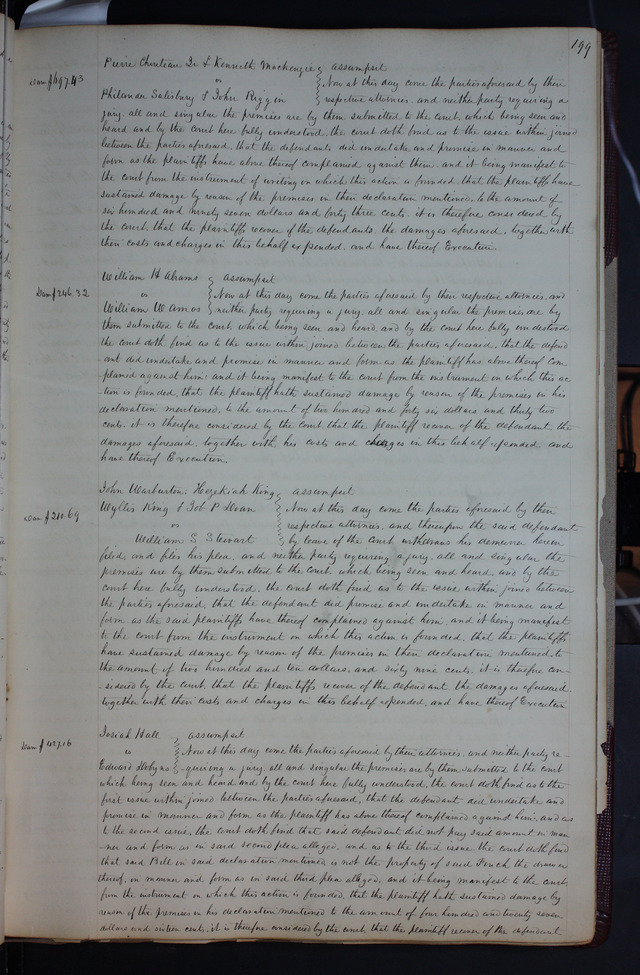 199
Pierre Chouteau Jr & Kenneth Mackenzie } assumpsit
Dam $697.43 vs } Now at this day come the parties aforesaid by their
Philander Salisbury & John Riggin } respective attornies, and neither party requiring a
jury, all and singular the premises are by them submitted to the court, which being seen and
heard and by the court here fully understood, the court doth find as to the issue within joined
between the parties aforesaid, that the defendants did undertake and promise in manner and
form as the plaintiffs have above thereof complained against them, and it being manifest to
the court from the instrument of writing on which this action is founded, that the plaintiffs have
sustained damage by reason of the premises in their declaration mentioned, to the amount of
six hundred and ninety seven dollars and forty three cents, it is therefore considered by
the court, that the plaintiffs recover of the defendants, the damages aforesaid, together with
their costs and charges in this behalf expended, and have thereof Execution.
William H Abrams } assumpsit
Dam $246.32 vs } Now at this day come the parties aforesaid by their respective attornies, and
William W Amos } neither party requiring a jury, all and singular the premises are by
them submitted to the court, which being seen and heard, and by the court here fully understood
the court doth find as to the issue within joined between the parties aforesaid, that the defend
ant did undertake and promise in manner and form as the plaintiff has above thereof com
plained against him; and it being manifest to the court from the instrument on which this ac
tion is founded, that the plaintiff hath sustained damage by reason of the premises in his
declaration mentioned, to the amount of two hundred and forty six dollars and thirty two
cents, it is therefore considered by the court, that the plaintiff recover of the defendant, the
damages aforesaid, together with his costs and charges in this behalf expended and
have thereof Execution
John Warburton, Hezekiah King } assumpsit
Dam $210.69 Wyllis King & Job P Doan } Now at this day come the parties aforesaid by their
vs } respective attornies, and thereupon the said defendant
William S Stewart } by leave of the Court withdraws his demurrer herein
filed, and files his plea, and neither party requiring a jury, all and singular the
premises are by them submitted to the court, which being seen and heard, and by the
court here fully understood, the court doth find as to the issue within joined between
the parties aforesaid, that the defendant did promise and undertake in manner and
form as the said plaintiffs have thereof complained against him, and it being manifest
to the court from the instrument on which this action is founded, that the plaintiffs
have sustained damage by reason of the premises in their declaration mentioned to
the amount of two hundred and ten dollars, and sixty nine cents, it is therefore con-
-sidered by the court, that the plaintiffs recover of the defendant the damages aforesaid
together with their costs and charges in this behalf expended, and have thereof Execution
Josiah Hall } assumpsit
Dam $427.16 vs } Now at this day come the parties aforesaid by their attornies, and neither party re-
Edward Dobyns } -quiring a jury, all and singular the premises are by them submitted to the court
which being seen and heard and by the court here fully understood, the court doth find as to the
first issue within joined between the parties aforesaid, that the defendant did undertake and
promise in manner and form as the plaintiff has above thereof complained against him, and as
to the second issue, the court doth find that said defendant did not pay said amount in man
-ner and form as in said second plea alleged, and as to the third issue the court doth find
that said Bill in said declaration mentioned, is not the property of said Finch, the drawer
thereof, in manner and form as in said third plea alleged, and it being manifest to the court
from the instrument on which this action is founded, that the plaintiff hath sustained damage by
reason of the premises in his declaration mentioned to the amount of four hundred and twenty seven
dollars and sixteen cents, it is therefore considered by the court, that the plaintiff recover of the defendant